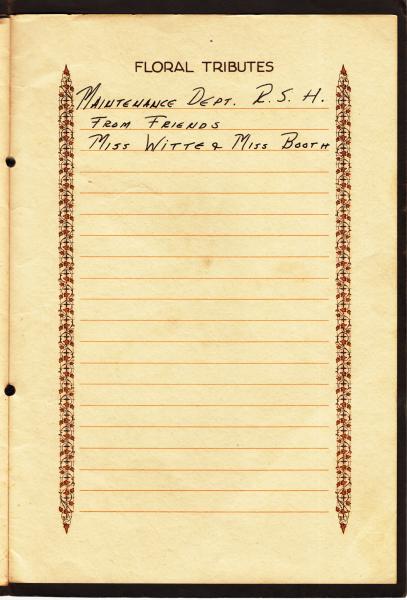 FLORAL TRIBUTES
MAINTENANCE DEPT. R. S. H.
FROM FRIENDS
MISS WITTE & MISS BOOTH